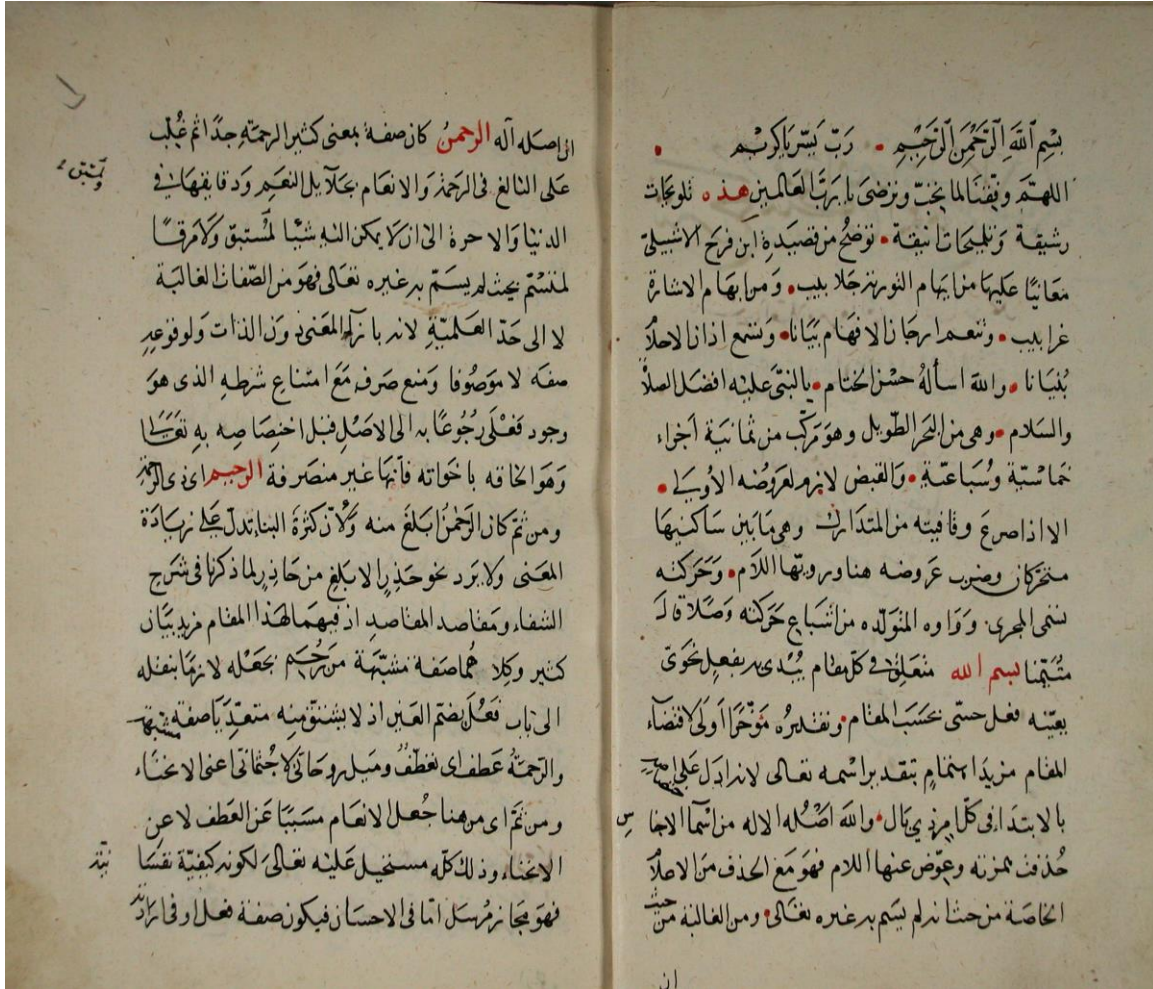 بسم الله الرحمن الرحيم • رب يسر يا كريم •
اللهم وفقنا لما تحب وترضى يا رب العالمين هذه تلويحات
رشيقة وتلميحات انيقة • توضح من قصيدة ابن فرح الاشبيلي
معانيا عليها من ايهام التورية جلابيب • ومن ابهام الاشارة
غرابيب • وتنعم ارجان الافهام بيانا • وتشمع اذان الاحلا
بنيانا • والله اسأله حسن الختام • بالنبي عليه افضل الصلا
والسلام • وهي من البحر الطويل وهو مركب من ثمانية أجزاء
خماسية وسباعية • والقبض لازم لعروضه الأولى •
الا اذا صرع وقافيته من المتدارك وهي ما بين ساكنيها
متحركان وضرب عروضه هنا ورويها اللام • وحركته
تسمى المجرى وواوه المتولده من اشباع حركته وصلا قال
متيمنا بسم الله متعلق في كل مقام يبدى به بفعل نحوي
يعينه فعل حسي بحسب المقام • وتقديره مؤخرا أولى لاقتضاء
المقام مزيد اهتمام بتقديم اسمه تعالى لانه ادل على
بالابتداء في كل امر ذي بال • والله اصله الاله من اسما الاجنا س
حذفت همزته وعوض عنها اللام فهو مع الحذف من الاعلا
الخاصة من حيث انه لم يسم به غيره تعالى • ومن الغالبة من حيث
ان
ان اصله آله الرحمن كان صفة بمعنى كثير الرحمة جدا ثم غلب
على البالغ في الرحمة والانعام بجلايل النعم ودقايقها في
الدنيا والاخرة الى ان لا يمكن اليه شيئا لمستبق ولا مرقا
لمتسم بحيث لم يسم به غيره تعالى فهو من الصفات الغالبة
لا الى حد العلمية لانه بازاء المعنى دون الذات ولوقوعه
صفة لا موصوفا ومنع صرفه مع امتناع شرطه الذي هو
وجود فعلى رجوعا به الى الاصل قبل اختصاصه به تعالى
وهو الحاقه باخواته فانها غير منصرفة الرحيم اى ذى الرحمة
ومن ثم كان الرحمن ابلغ منه ولان كثرة البنا تدل على زيادة
المعنى ولا يرد نحو حذر الابلغ من حاذر لما ذكرنا في شرح
الشفاء ومقاصد المقاصد اذ فيهما لهذا المقام مزيد بيان
كثير وكلا هما صفة مشبهة من رحم بجعله لازما بنقله
الى باب فعل بضم العين اذ لا يشتق منه متعديا صفة مشبهة
والرحمة عطف اى تعطف وميل روحاني لا جثماني اعنى الانحناء
ومن ثم اى من هنا جعل الانعام مسببا عن العطف لا عن
الانحناء وذلك كله مستحيل عليه تعالى لكونه كيفية نفسا نية
فهو مجاز مرسل اما في الاحسان فيكون صفة فعل او في ارادته